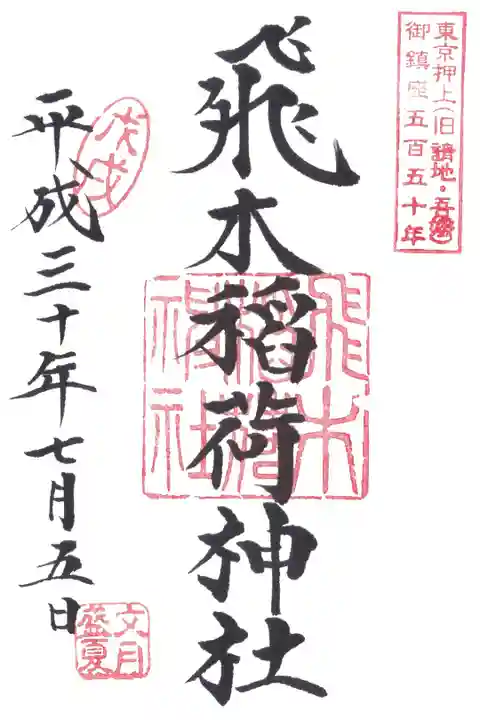 東京押上(旧請地・吾嬬)
御鎮座五百五十年
飛木稲荷神社
飛木
稲荷
神社
戊戌
平成三十年七月五日
文月
盛夏